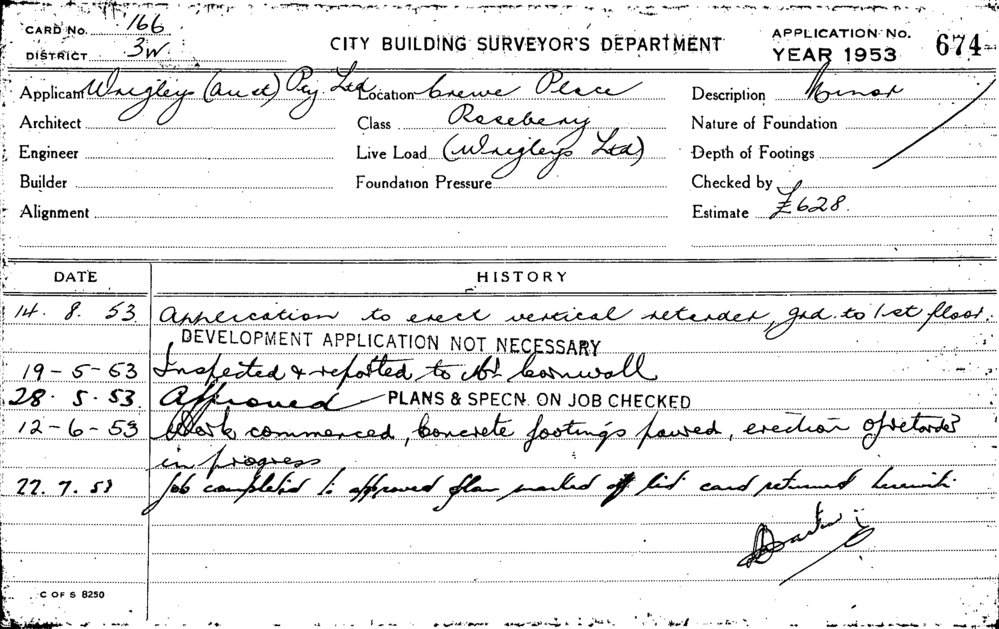 CARD No. 166
DISTRICT 3W
CITY BUILDING SURVEYOR'S DEPARTMENT
APPLICATION No.
YEAR 1953
674
Applicant Wrigleys (Aust) Pty Ltd Location Crewe Place Description Minor
Architect Class Rosebery Nature of Foundation
Engineer Live Load (Wrigleys Ltd) Depth of Footings
Builder Foundation Pressure Checked by
Alignment Estimate £628.
DATE HISTORY
14. 8. 53 Application to erect vertical retarder, grd. to 1st floor.
DEVELOPMENT APPLICATION NOT NECESSARY
19-5-53 Inspected & reported to Mr Cornwall
28. 5. 53 Approved PLANS & SPECN. ON JOB CHECKED
12-6-53 Work commenced, concrete footings poured, erection of retarder
in progress
22. 7. 53 Job completed to approved plan marked off list card returned herewith.
C OF S 8250